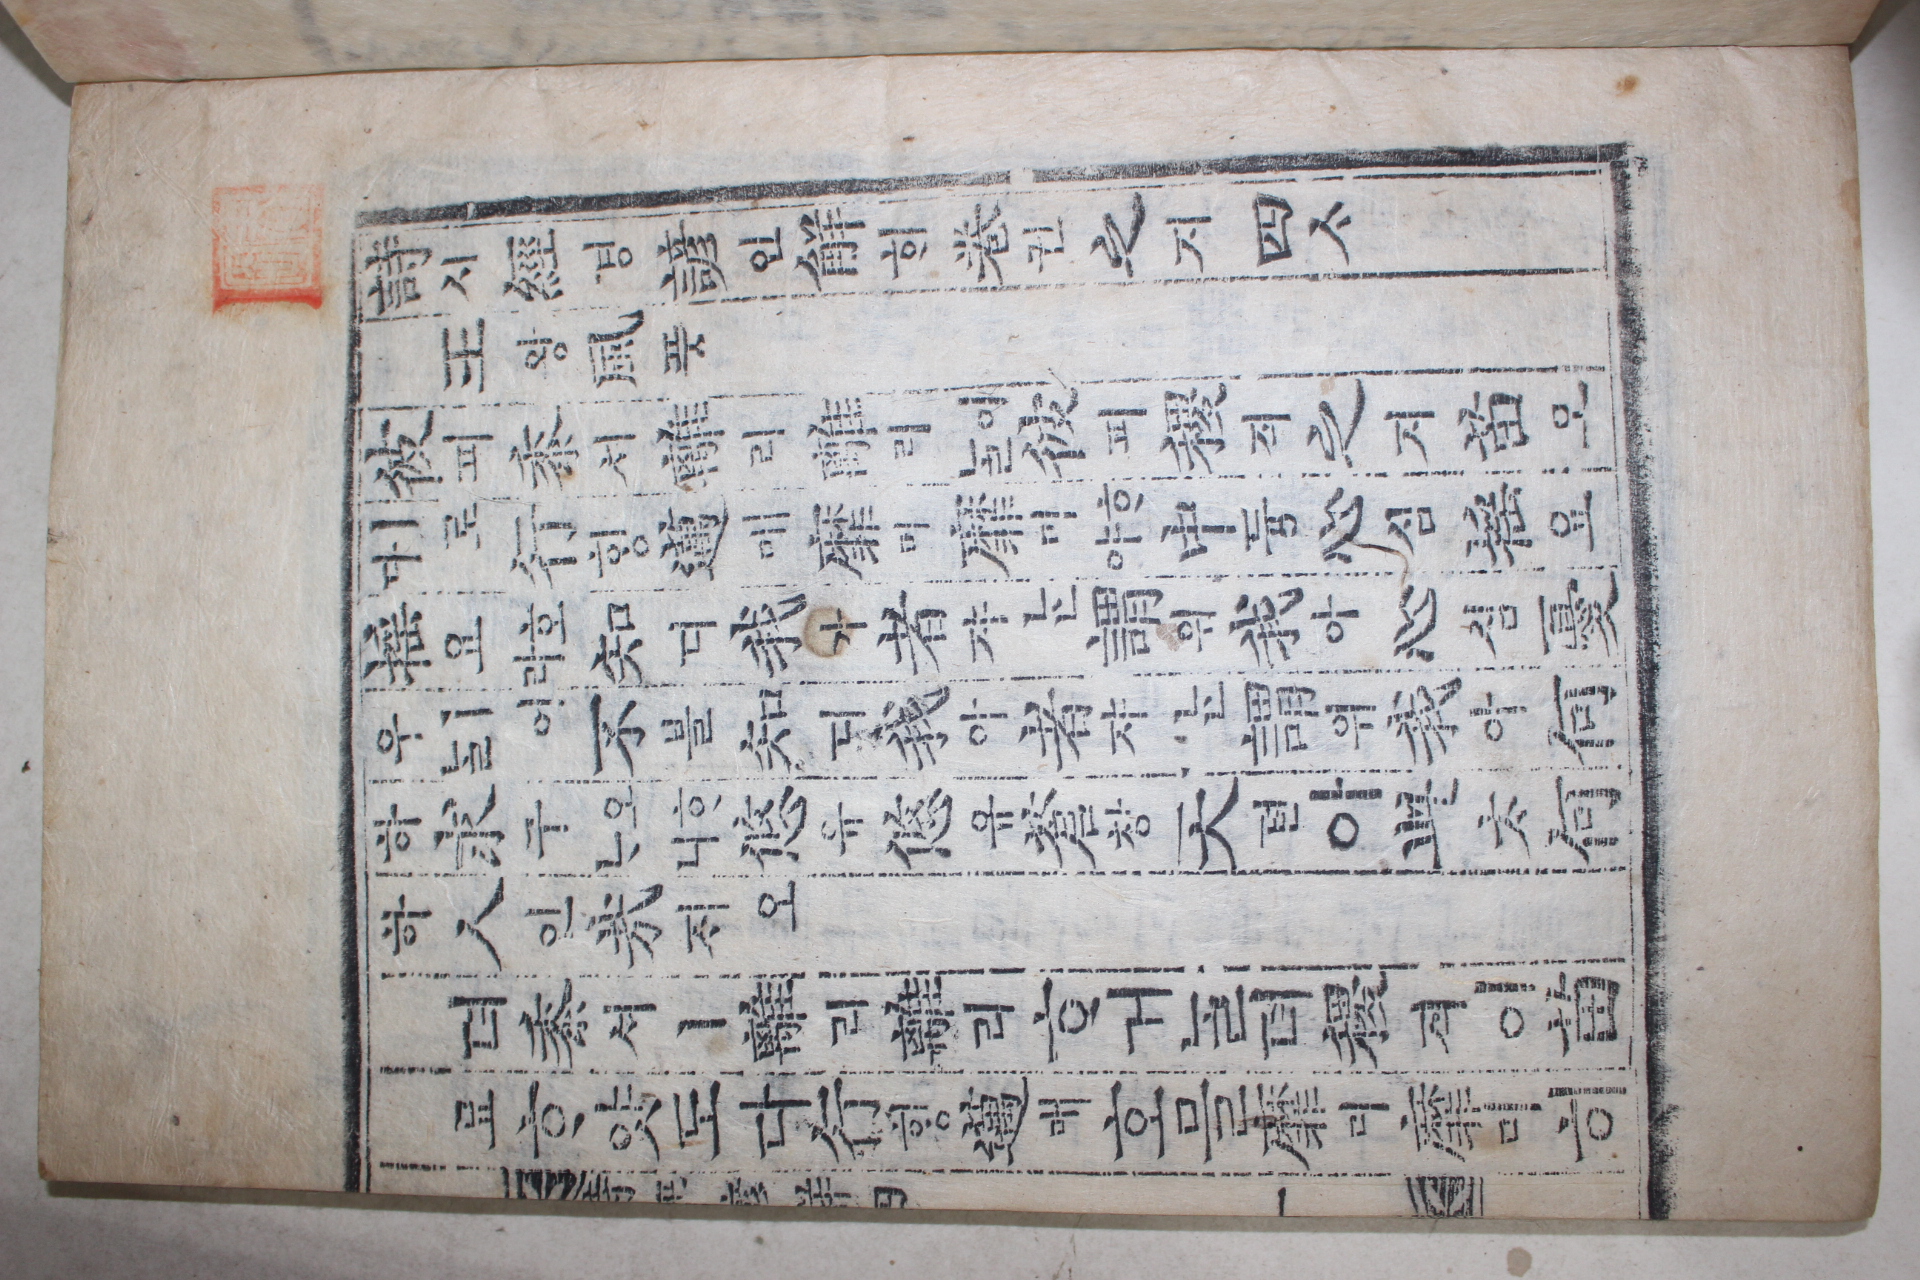 詩시經경諺언解ᄒᆡ卷권之지四ᄉᆞ
王왕風풍
彼피黍셔離리離리어ᄂᆞᆯ彼피稷직之지苗묘
ㅣ로다行ᄒᆡᆼ邁매靡미靡미ᄒᆞ야中듕心심搖요
搖요ᄒᆞ라知디我아者쟈ᄂᆞᆫ謂위我아心심憂
우ㅣ어ᄂᆞᆯ不블知디我아者쟈ᄂᆞᆫ謂위我아何
하求구오ᄒᆞᄂᆞ니悠유悠유蒼창天텬아此ᄎᆞ何
하人인哉ᄌᆡ오
뎌黍셔ㅣ離리離리ᄒᆞ거ᄂᆞᆯ뎌稷직의苗
묘ᄒᆞ얏도다行ᄒᆡᆼ邁매홈을靡미靡미